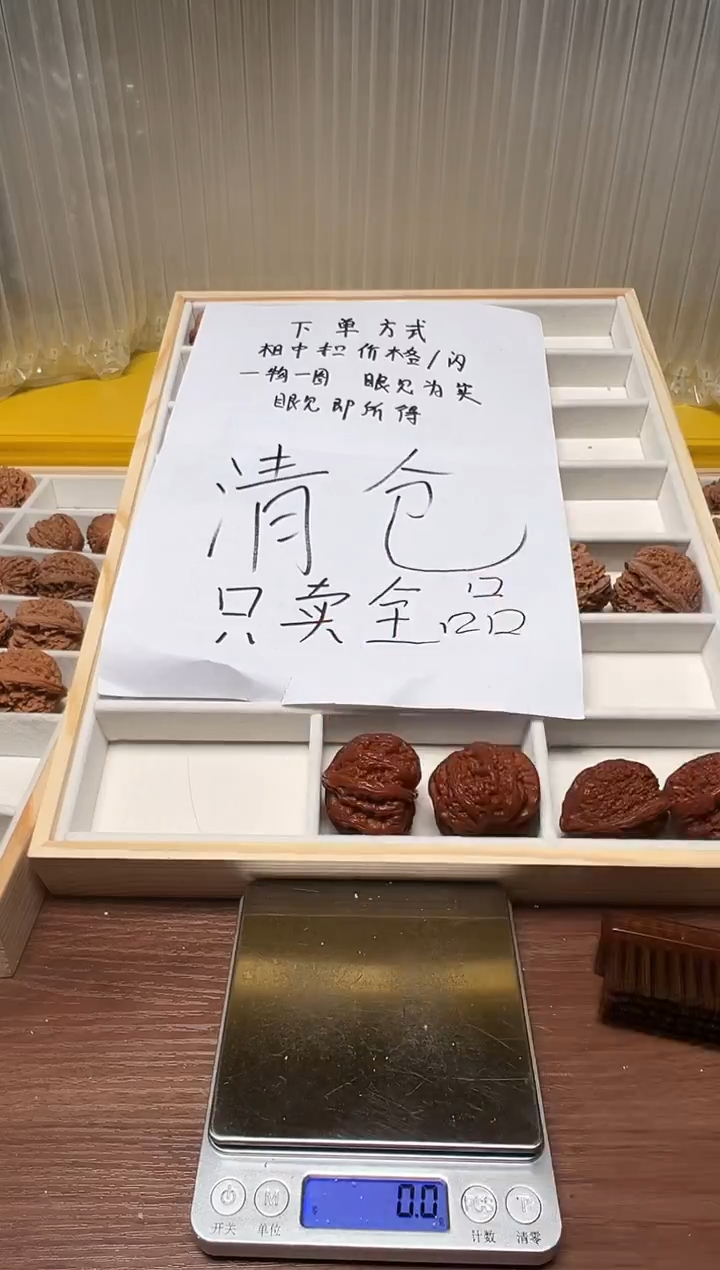 下单方式
相中扣价格/闪
一物一图 眼见为实
眼见即所得
清仓
只卖全品
0.0
M PCS T
开关 单位 计数 清零